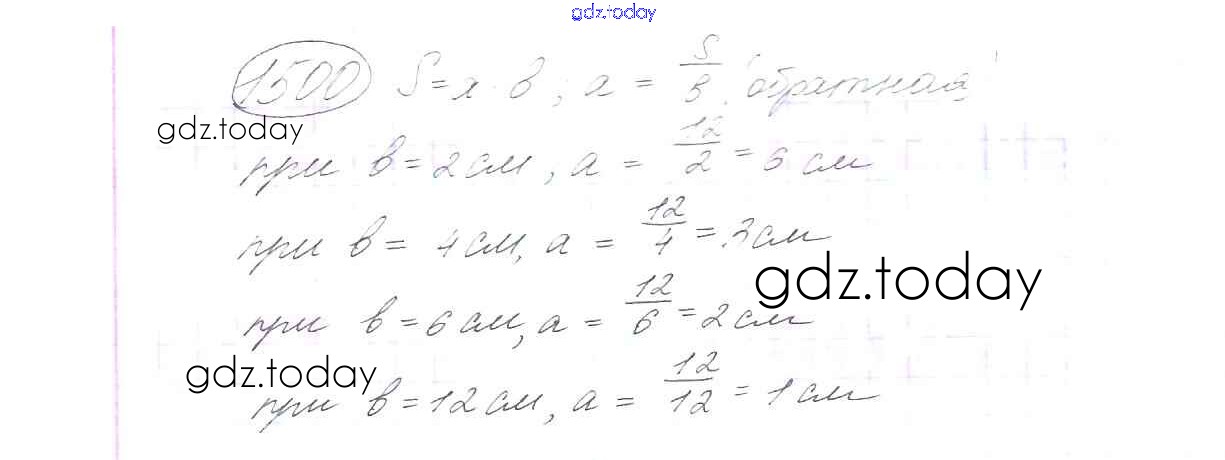 gdz.today
1500 S=a·в; a = S/в обратная
gdz.today
при в=2см, a = 12/2 = 6 см
при в= 4см, a = 12/4 = 3см
gdz.today
при в=6см, a = 12/6 = 2см
gdz.today
при в=12см, a = 12/12 = 1см